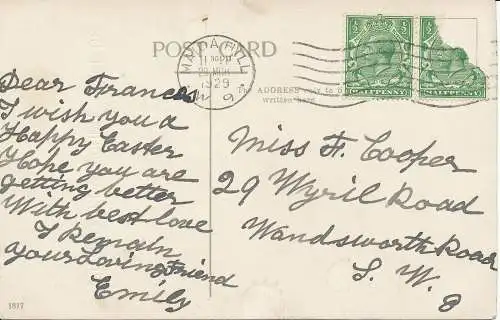 POST CARD
MAIDA HILL
1929
W. 9
½ ½
HALFPENNY HALFPENNY
The ADDRESS only to be
written here
Dear Frances
I wish you a
Happy Easter
Hope you are
getting better
With best love
I Remain
your loving Friend
Emily
Miss F. Cooper
29 Wyril Road
Wandsworth Road
S. W. 8
1817